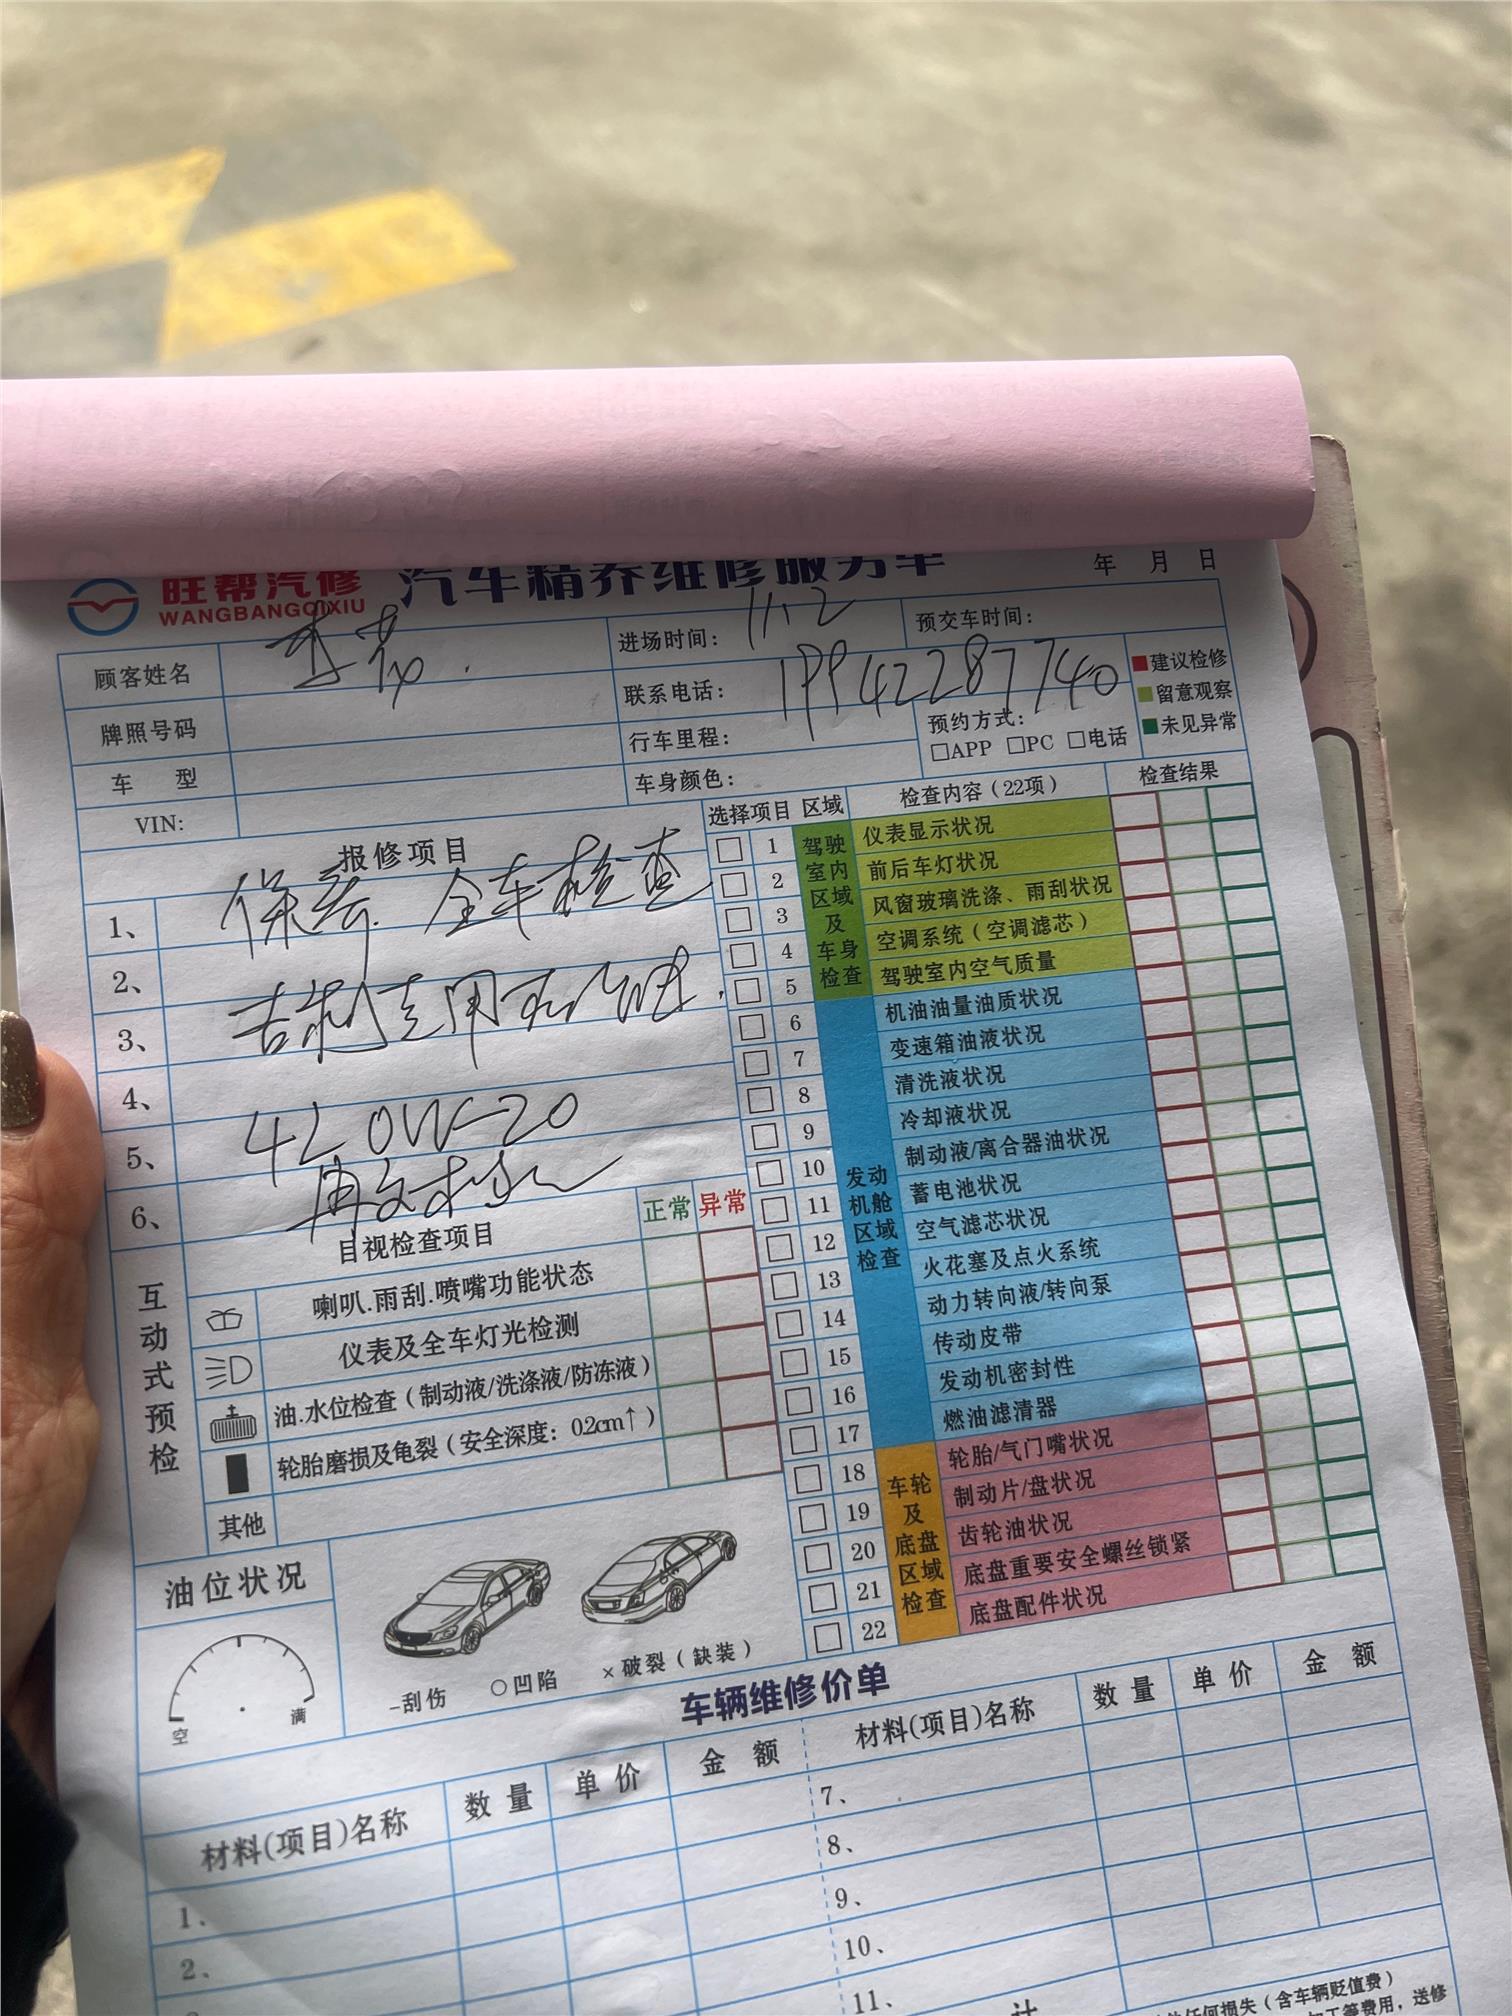 旺帮汽修 汽车精养维修服务单 年 月 日
WANGBANGQIXIU
顾客姓名 李 进场时间: 11.2 预交车时间:
联系电话: 19942287740
牌照号码 行车里程: 预约方式:
□APP □PC □电话
车 型 车身颜色:
VIN:
■建议检修
■留意观察
■未见异常
报修项目
1、 保养. 全车检查
2、
3、 吉利专用机油
4、
5、 4L 0W-20
6、
互动式预检
目视检查项目 正常 异常
喇叭.雨刮.喷嘴功能状态
仪表及全车灯光检测
油.水位检查(制动液/洗涤液/防冻液)
轮胎磨损及龟裂(安全深度: 0.2cm↑)
其他
油位状况
空 满
-刮伤 ○凹陷 ×破裂(缺装)
选择项目 区域 检查内容(22项) 检查结果
驾驶室内区域及车身检查
□ 1 仪表显示状况
□ 2 前后车灯状况
□ 3 风窗玻璃洗涤、雨刮状况
□ 4 空调系统(空调滤芯)
□ 5 驾驶室内空气质量
发动机舱区域检查
□ 6 机油油量油质状况
□ 7 变速箱油液状况
□ 8 清洗液状况
□ 9 冷却液状况
□ 10 制动液/离合器油状况
□ 11 蓄电池状况
□ 12 空气滤芯状况
□ 13 火花塞及点火系统
□ 14 动力转向液/转向泵
□ 15 传动皮带
□ 16 发动机密封性
□ 17 燃油滤清器
车轮及底盘区域检查
□ 18 轮胎/气门嘴状况
□ 19 制动片/盘状况
□ 20 齿轮油状况
□ 21 底盘重要安全螺丝锁紧
□ 22 底盘配件状况
车辆维修价单
材料(项目)名称 数 量 单 价 金 额 材料(项目)名称 数 量 单 价 金 额
1、 7、
2、 8、
9、
10、
11、
计
任何损失(含车辆贬值费)
加工等费用,送修